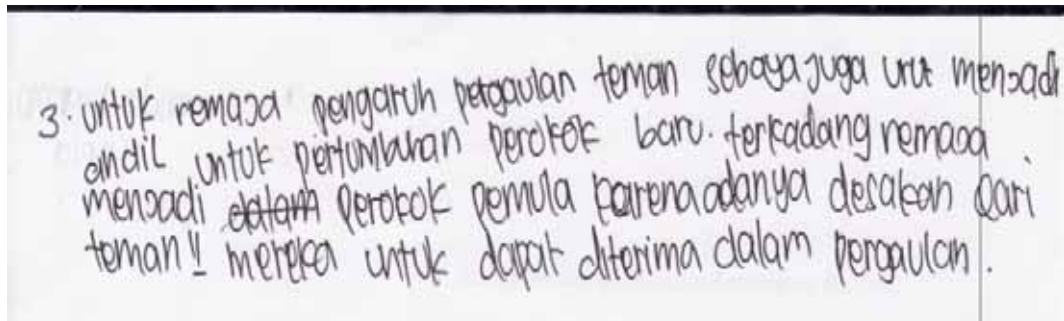 3. untuk remaja pengaruh pergaulan teman sebaya juga urut menjadi
andil untuk pertumbuhan perokok baru. terkadang remaja
menjadi dalam perokok pemula karena adanya desakan dari
teman" mereka untuk dapat diterima dalam pergaulan.